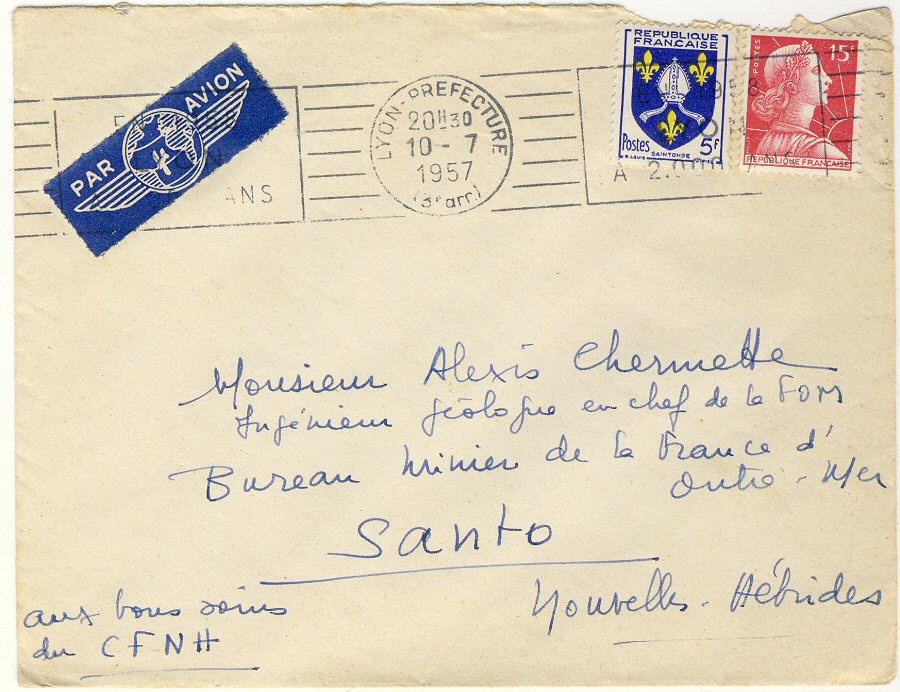 PAR AVION
LYON-PREFECTURE
20H30
10 - 7
1957
(3e arr)
ANS
A 2.000
REPUBLIQUE
FRANÇAISE
Postes 5f
SAINTONGE
POSTES
15F
REPUBLIQUE FRANÇAISE
Monsieur Alexis Chermette
Ingénieur géologue en chef de la FOM
Bureau minier de la France d'
Outre-Mer
Santo
Nouvelles-Hébrides
aux bons soins
du CFNH